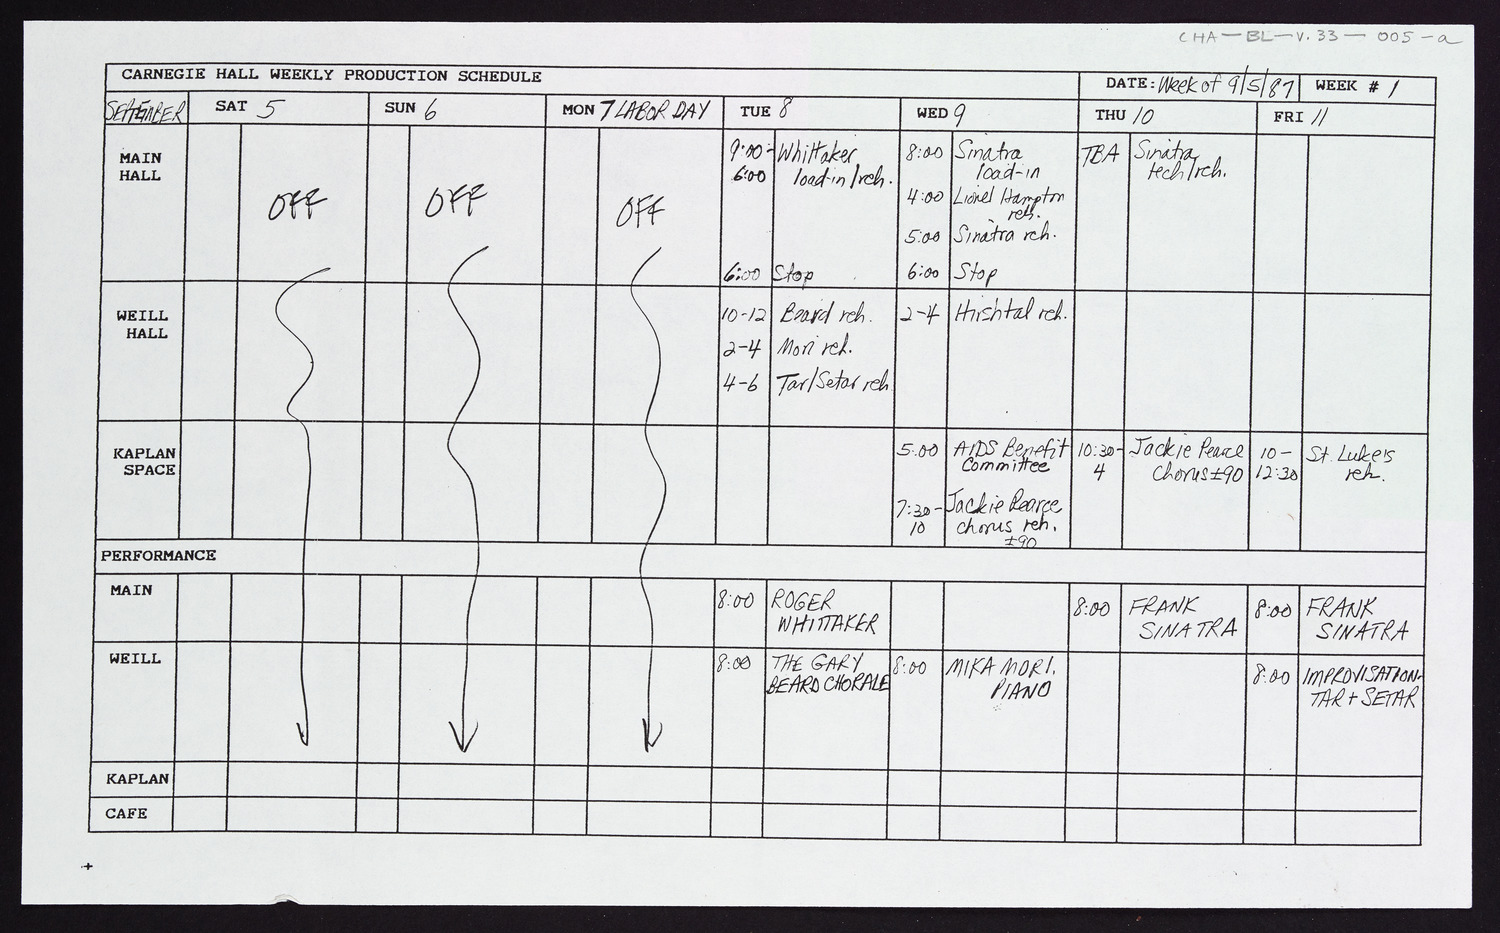 CHA-BL-V.33-005-a
CARNEGIE HALL WEEKLY PRODUCTION SCHEDULE
DATE: Week of 9/5/87 WEEK # 1
SEPTEMBER SAT 5 SUN 6 MON 7 LABOR DAY TUE 8 WED 9 THU 10 FRI 11
MAIN
HALL
OFF
OFF
OFF
9:00- Whittaker
6:00 load-in/reh.
6:00 Stop
8:00 Sinatra
load-in
4:00 Lionel Hampton
reh.
5:00 Sinatra reh.
6:00 Stop
TBA Sinatra
tech/reh.
WEILL
HALL
10-12 Beard reh.
2-4 Mori reh.
4-6 Tar/Setar reh
2-4 Hirshtal reh.
KAPLAN
SPACE
5:00 AIDS Benefit
Committee
7:30- Jackie Pearce
10 chorus reh.
±90
10:30- Jackie Pearce
4 Chorus ±90
10- St. Luke's
12:30 reh.
PERFORMANCE
MAIN
8:00 ROGER
WHITTAKER
8:00 FRANK
SINATRA
8:00 FRANK
SINATRA
WEILL
8:00 THE GARY
BEARD CHORALE
8:00 MIKA MORI,
PIANO
8:00 IMPROVISATION-
TAR + SETAR
KAPLAN
CAFE